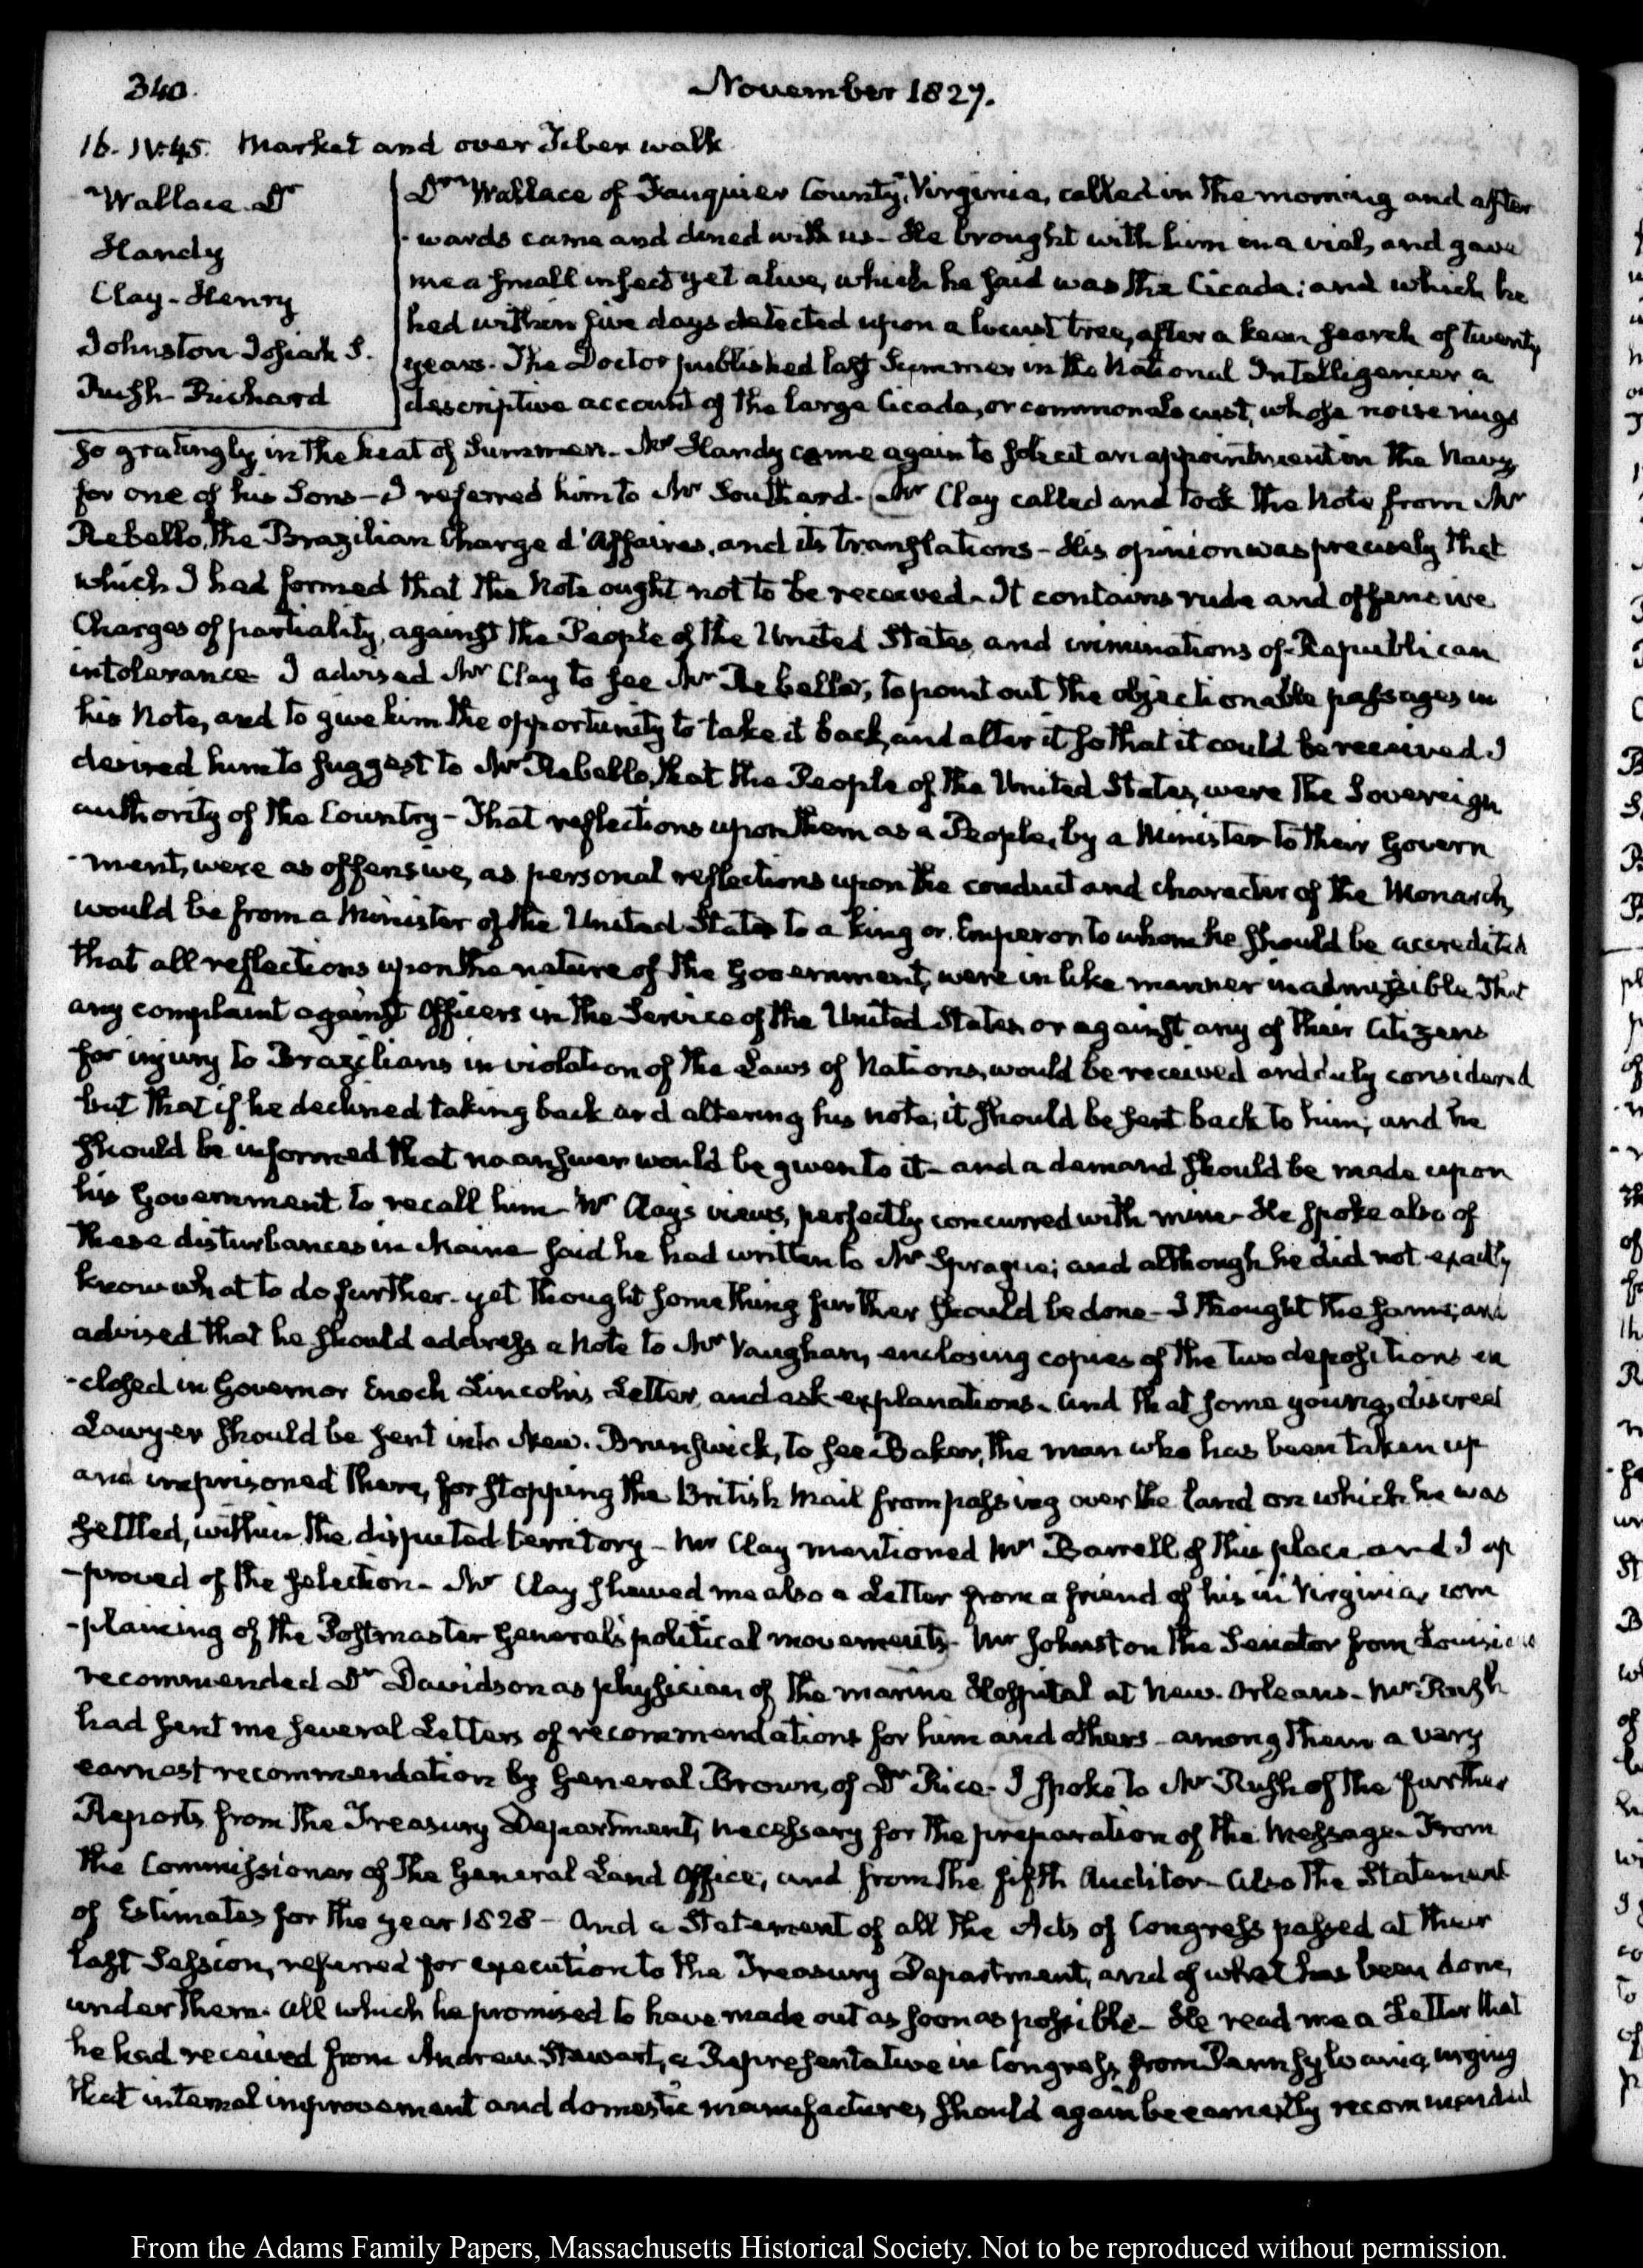 340.
November 1827.
16. IV:45. Market and over Tiber walk
Wallace. Dr
Handy
Clay- Henry
Johnston Josiah S.
Rush- Richard
Dr Wallace of Fauquier County, Virginia, called in the morning and after
-wards came and dined with us- He brought with him in a vial, and gave
me a small insect yet alive, which he said was the Cicada; and which he
had within five days detected upon a locust tree, after a keen search of twenty
years. The Doctor published last Summer in the National Intelligencer a
descriptive account of the large Cicada, or common locust, whose noise rings
so gratingly in the heat of Summer- Mr Handy came again to solicit an appointment in the Navy
for one of his Sons- I referred him to Mr Southard- Mr Clay called and took the Note from Mr
Rebello, the Brazilian Charge d'Affaires, and its translations- His opinion was precisely that
which I had formed that the Note ought not to be received- It contains rude and offensive
Charges of partiality, against the People of the United States, and criminations of Republican
intolerance- I advised Mr Clay to see Mr Rebello, to point out the objectionable passages in
his Note, and to give him the opportunity to take it back, and alter it so that it could be received I
desired him to suggest to Mr Rebello, that the People of the United States, were the Sovereign
authority of the Country- That reflections upon them as a People, by a Minister to their Govern
-ment, were as offensive, as personal reflections upon the conduct and character of the Monarch,
would be from a Minister of the United States to a king or Emperor to whom he should be accredited
that all reflections upon the nature of the Government, were in like manner inadmissible That
any complaint against Officers in the Service of the United States or against any of their Citizens
for injury to Brazilians in violation of the Laws of Nations, would be received and duly considered
but that if he declined taking back and altering his note, it should be sent back to him; and he
should be informed that no answer would be given to it- and a demand should be made upon
his Government to recall him- Mr Clay's views, perfectly concurred with mine- He spoke also of
these disturbances in Maine- said he had written to Mr Sprague; and although he did not exactly
know what to do further- yet thought something further should be done- I thought the same; and
advised that he should address a Note to Mr Vaughan, enclosing copies of the two depositions en
-closed in Governor Enoch Lincoln's Letter, and ask explanations- And that some young, discreet
Lawyer should be sent into New-Brunswick, to see Baker, the man who has been taken up
and imprisoned there, for stopping the British Mail from passing over the land on which he was
settled, within the disputed territory- Mr Clay mentioned Mr Barrell of this place and I ap
-proved of the selection- Mr Clay shewed me also a Letter from a friend of his in Virginia, com
-plaining of the Postmaster General's political movements- Mr Johnston the Senator from Louisiana
recommended Dr Davidson as physician of the marine Hospital at New-Orleans- Mr Rush
had sent me several Letters of recommendations for him and others- among them a very
earnest recommendation by General Brown, of Dr Rice- I spoke to Mr Rush of the further
Reports from the Treasury Department, necessary for the preparation of the Message- From
the Commissioner of the General Land Office, and from the fifth Auditor- Also the Statement
of Estimates for the year 1828- And a Statement of all the Acts of Congress passed at their
last Session, referred for execution to the Treasury Department, and of what has been done,
under them. All which he promised to have made out as soon as possible- He read me a Letter that
he had received from Andrew Stewart, a Representative in Congress from Pennsylvania, urging
that internal improvement and domestic manufactures should again be earnestly recommended
From the Adams Family Papers, Massachusetts Historical Society. Not to be reproduced without permission.